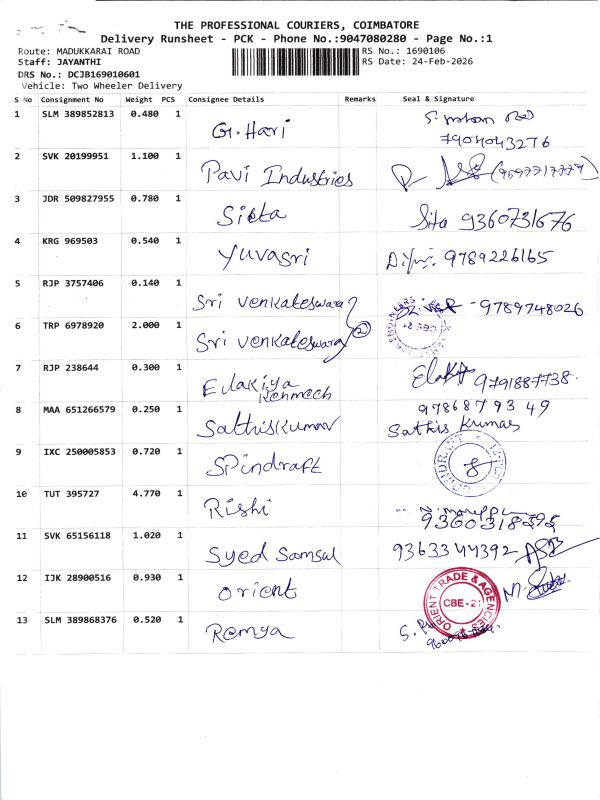 THE PROFESSIONAL COURIERS, COIMBATORE
Delivery Runsheet - PCK - Phone No.:9047080280 - Page No.:1
Route: MADUKKARAI ROAD RS No.: 1690106
Staff: JAYANTHI RS Date: 24-Feb-2026
DRS No.: DCJB169010601
Vehicle: Two Wheeler Delivery
S No Consignment No Weight PCS Consignee Details Remarks Seal & Signature
1 SLM 389852813 0.480 1 G. Hari
7904043276
2 SVK 20199951 1.100 1 Pavi Industries
3 JDR 509827955 0.780 1 Sista Sita 9360731676
4 KRG 969503 0.540 1 Yuvasri 9789226165
5 RJP 3757406 0.140 1 Sri Venkateswara 9789748026
6 TRP 6978920 2.000 1 Sri Venkateswara 2
7 RJP 238644 0.300 1 Elakiya Kenmech 9791887738
8 MAA 651266579 0.250 1 Sathiskumar 9786879349
Sathis Kumar
9 IXC 250005853 0.720 1 Spindraft 8
10 TUT 395727 4.770 1 Rishi
11 SVK 65156118 1.020 1 Syed Samsul 9363344392
12 IJK 28900516 0.930 1 Orient ORIENT TRADE & AGENCIES CBE-21
13 SLM 389868376 0.520 1 Remya